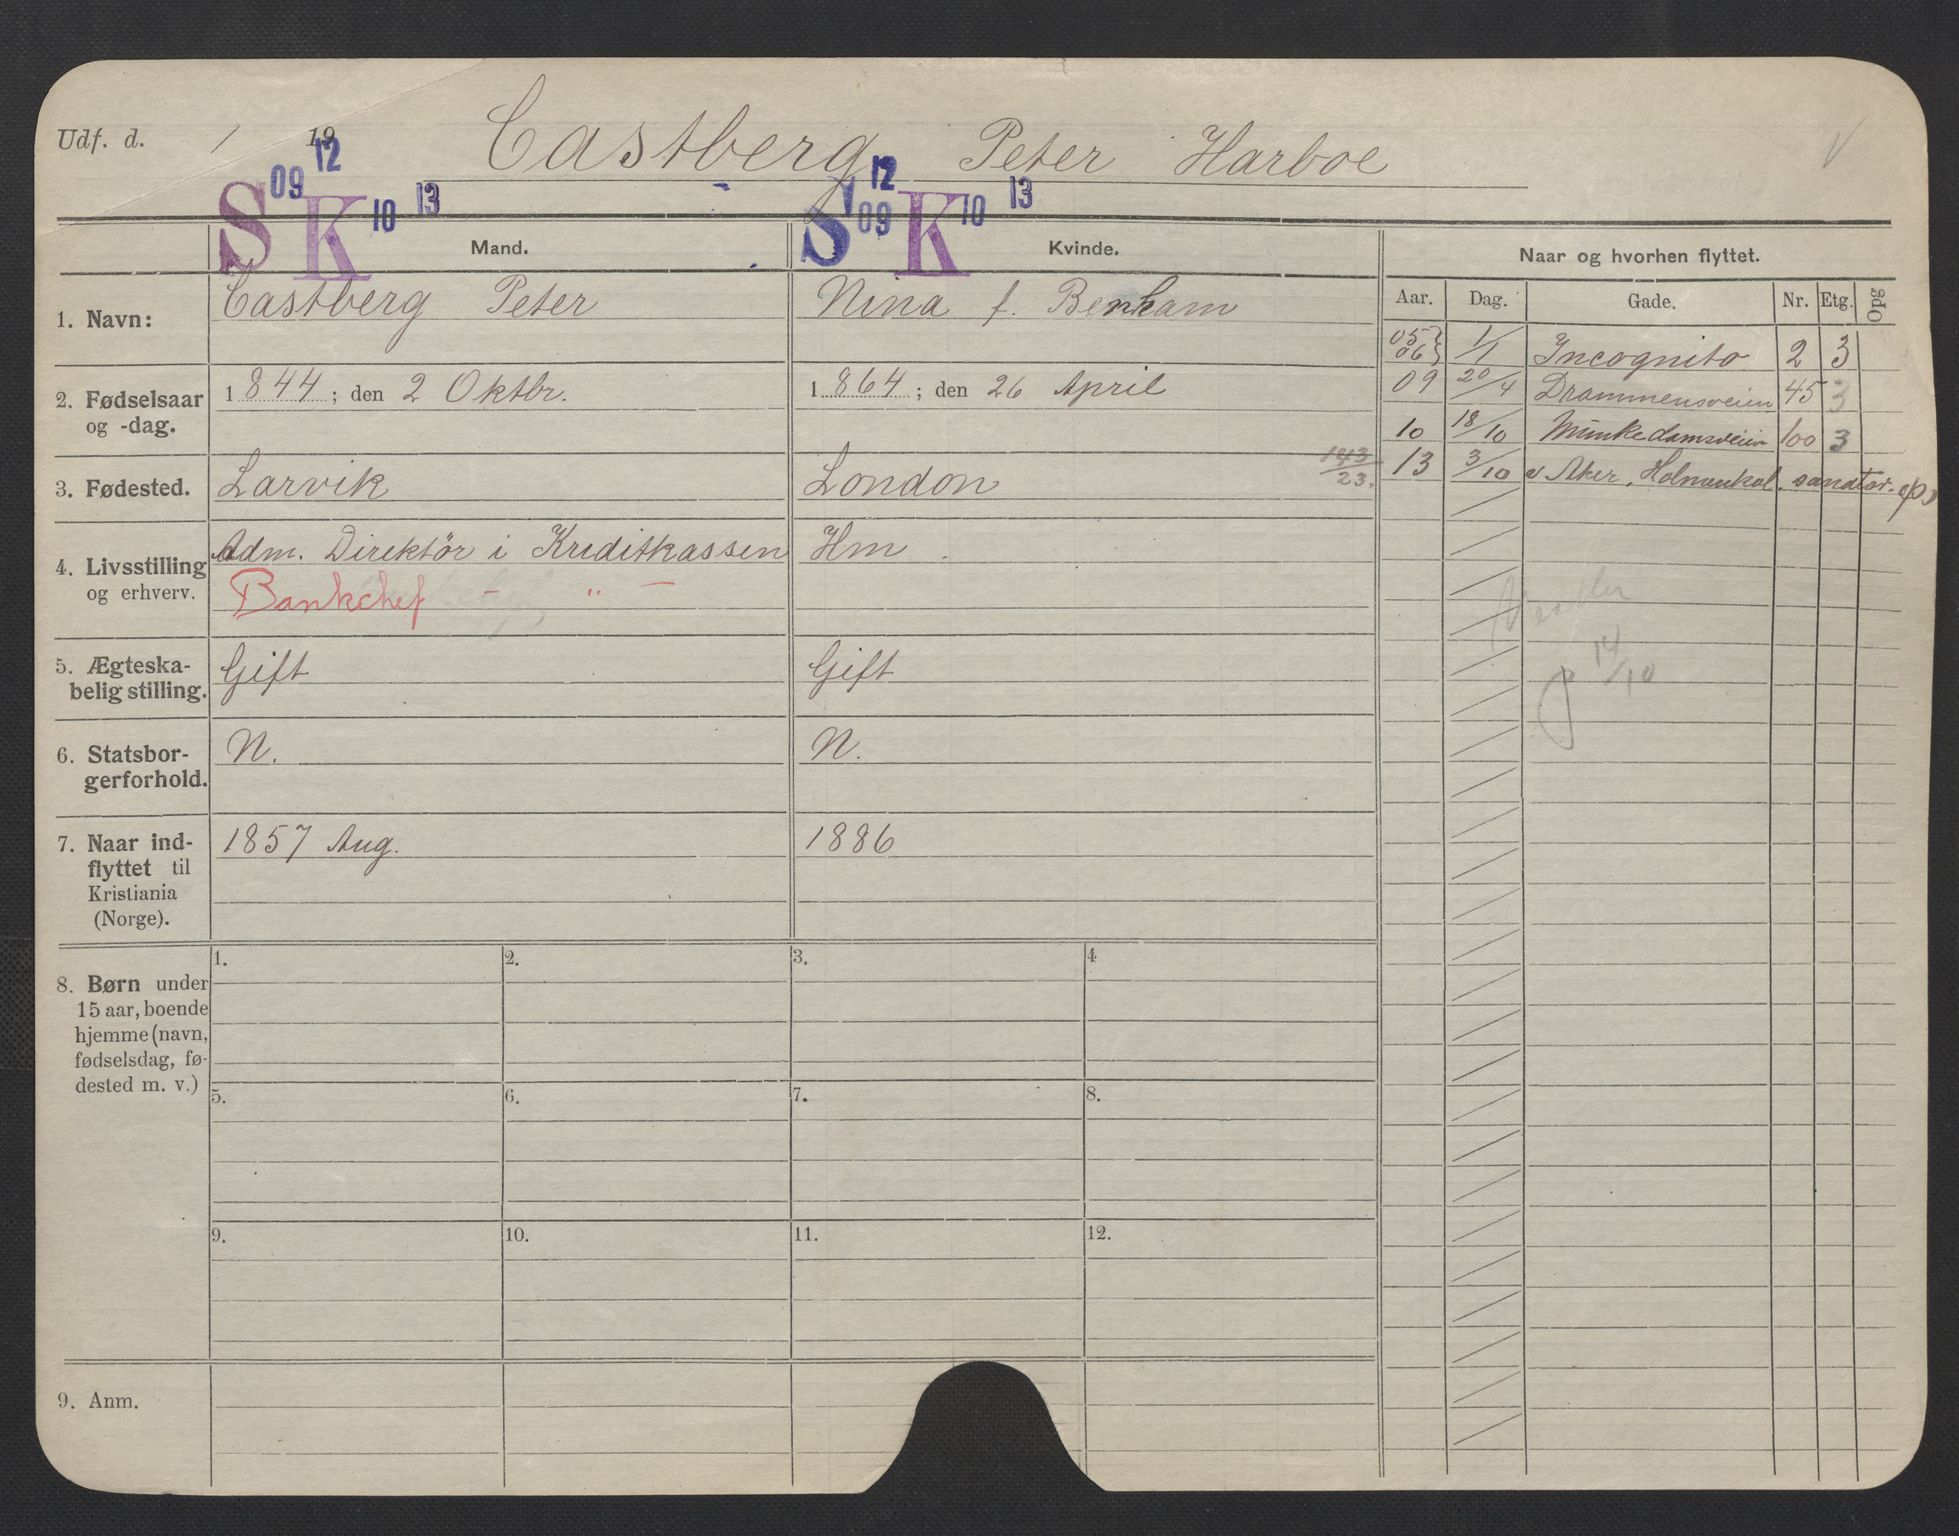 Udf. d. / 19
Castberg Peter Harboe
V
S 09 12 K 10 13
S 09 12 K 10 13
Mand.
Kvinde.
Naar og hvorhen flyttet.
Aar. Dag. Gade. Nr. Etg. Opg
1. Navn:
Castberg Peter
Nina f. Benham
2. Fødselsaar
og -dag.
1844; den 2 Oktbr.
1864; den 26 April
3. Fødested.
Larvik
London
4. Livsstilling
og erhverv.
Adm. Direktör i Kreditkassen
Bankchef - " -
Hm.
5. Ægteska-
belig stilling.
Gift
Gift
6. Statsbor-
gerforhold.
N.
N.
7. Naar ind-
flyttet til
Kristiania
(Norge).
1857 Aug.
1886
05 06 } 1/1 Incognito 2 3
09 20/4 Drammensveien 45 3
10 18/10 Munkedamsveien 100 3
143/23.
13 3/10 v Aker. Holmenkol. sanator.
14/10
8. Børn under
15 aar, boende
hjemme (navn,
fødselsdag, fø-
dested m. v.)
1. 2. 3. 4
5. 6. 7. 8.
9. 10. 11. 12.
9. Anm.